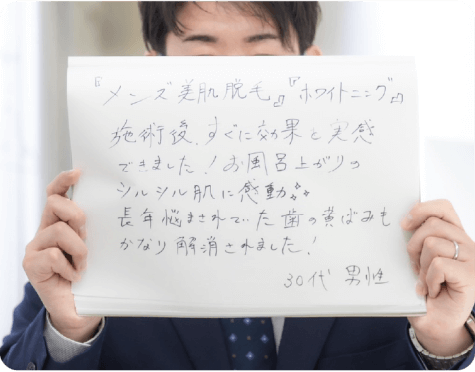 『メンズ美肌脱毛』『ホワイトニング』
施術後、すぐに効果を実感
できました！お風呂上がりの
ツルツル肌に感動✨
長年悩まされていた歯の黄ばみも
かなり解消されました！
30代 男性